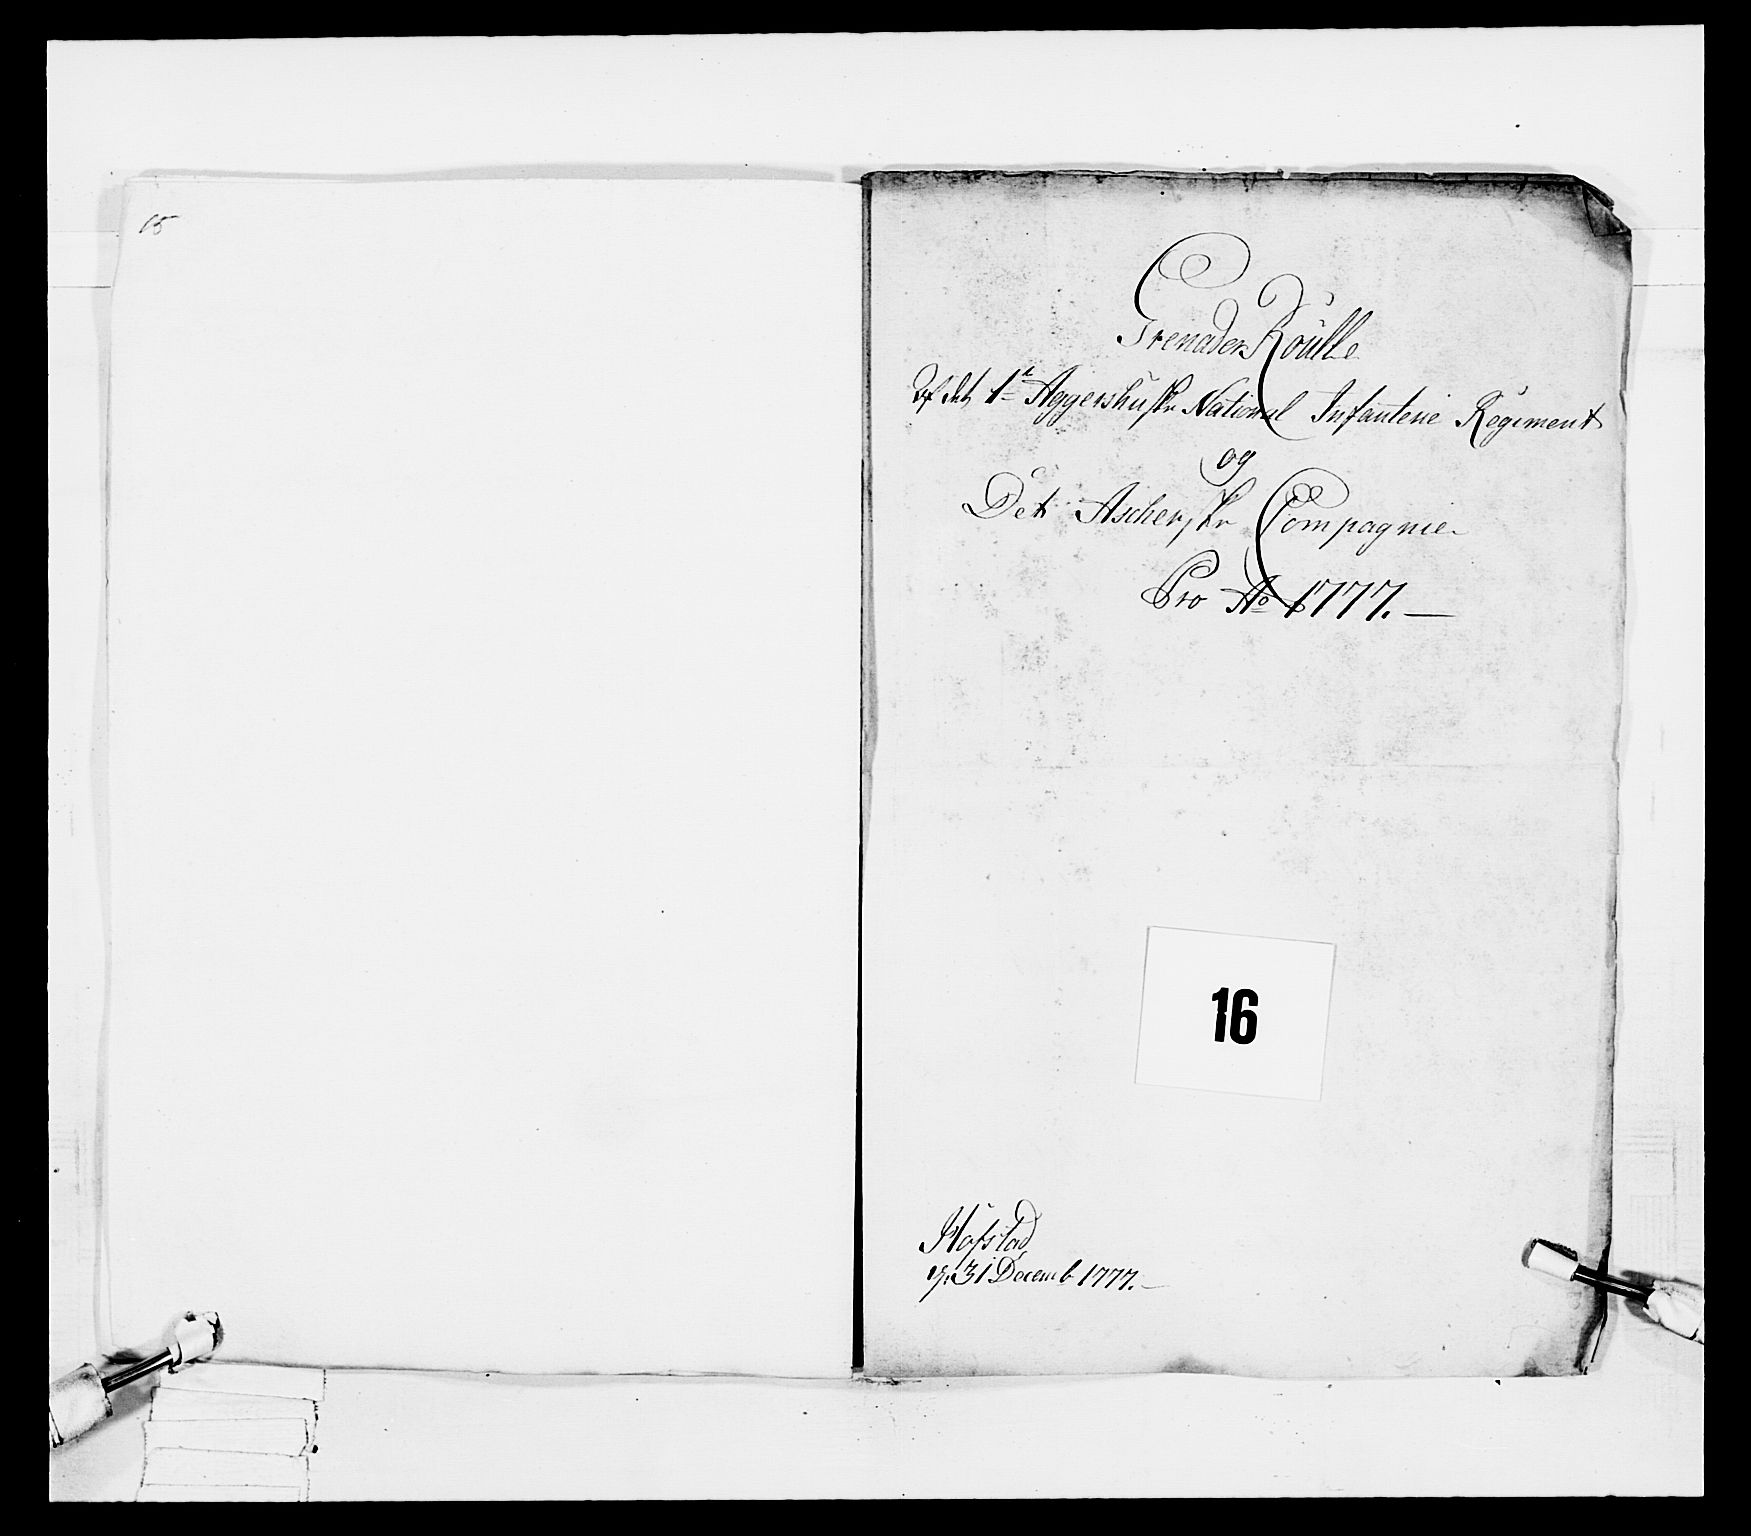 15
Grenader Roulle
Af det 1te Aggershuske National Infanterie Regiment
og
Det Ascherske Compagnie
Pro Ao 1777.
16
Hofstad
31 Decemb 1777.